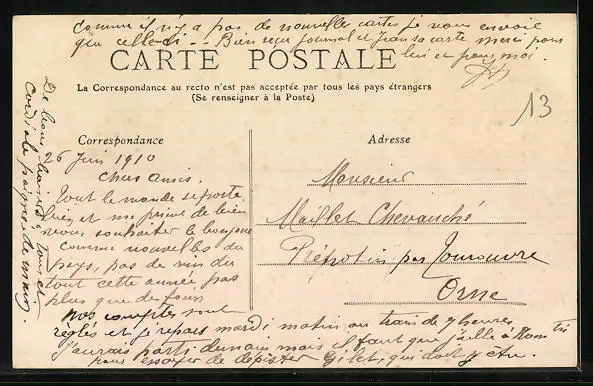 Comme il n'y a pas de nouvelles cartes je vous envoie
que celle-ci -- Bien reçu journal et sa carte merci pour
lui et pour moi.
CARTE POSTALE
La Correspondance au recto n'est pas acceptée par tous les pays étrangers
(Se renseigner à la Poste)
13
Correspondance
26 Juin 1910
Chers Amis.
Tout le monde se porte
bien et me prient de bien
vous souhaiter le bonjour
comme nouvelles du
pays, pas de vin du
tout cette année pas
plus que de
Nos comptes sont
réglés et je repars mardi matin au train de 7 heures
J'aurais parti demain mais il faut que j'aille à
pour essayer de dépister Gilet, qui doit y être.
De bons baisers à tous et
Cordiale poignée de main.
Adresse
Monsieur
Maillet Chevauché
Prépotin par Tourouvre
Orne